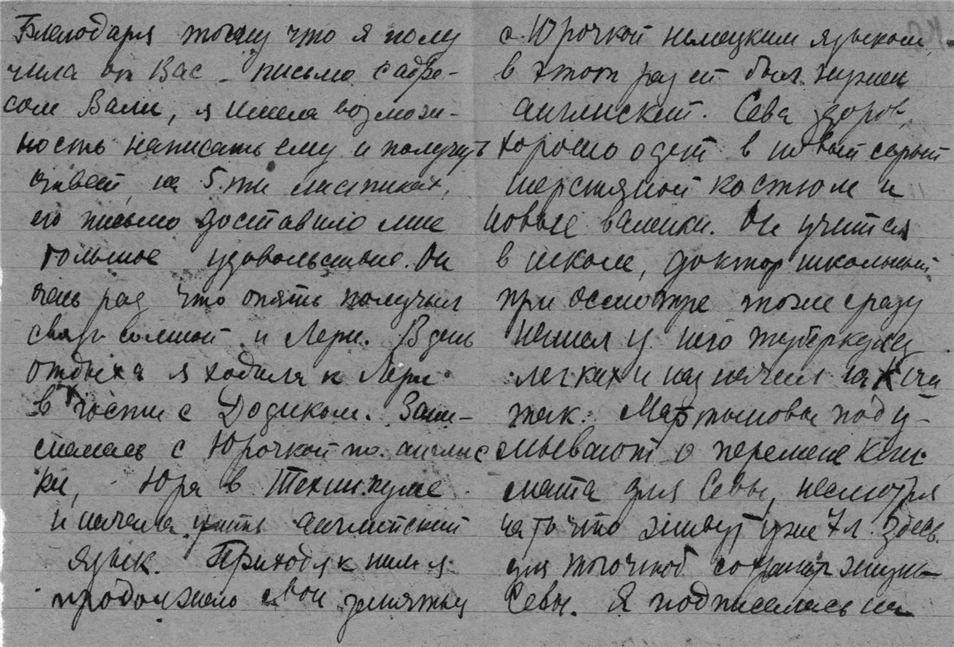 Благодаря тому что я полу
чила от Вас - письмо с адре-
сом Вали, я имела возмож-
ность написать ему и получить
ответ на 5-ти листиках,
его письмо доставило мне
большое удовольствие. Он
очень рад что опять получил
связь со мной и Лери. В день
отдыха я ходила к Лери
в гости с Додиком. Зани-
малась с Юрочкой по англис
ки, Юра в Техникуме
и начала учить английский
язык. Приходя к ним я
продолжаю свои занятия
с Юрочкой немецким языком,
в этот раз ей был нужен
английский. Сева здоров,
хорошо одет в новый серый
шерстяной костюм и
новые валенки. Он учится
в школе, доктор школьный
при осмотре тоже сразу
нашел у него туберкулез
легких и назначил
Мартыновы поду-
мывают о перемене кли
мата для Севы, несмотря
на то что живут уже 7 л. здесь.
для жизни
Севы. Я подписалась на